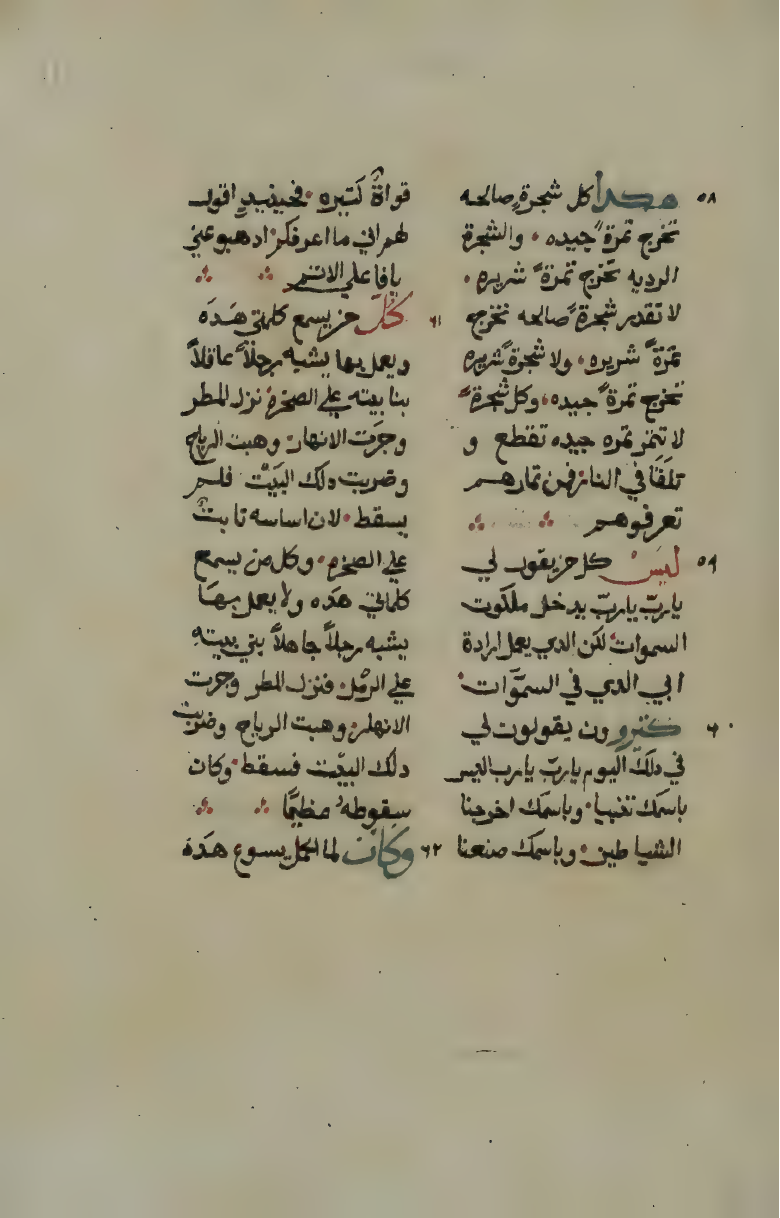 ٥٨ هكدا كل شجرةٍ صالحه
تخرج تمرةً جيده · والشجرة
الرديه تخرج تمرةً شريره ·
لا تقدر شجرةً صالحه تخرج
تمرةً شريره · ولا شجرةً شريره
تخرج تمرةً جيده · وكل شجرةً
لا تتمر تمره جيده تقطع و
تلقا في النار فمن تمارهم
تعرفوهم
٥٩ ليس كل من يقول لي
ياربّ ياربّ يدخل ملكوت
السموات · لكن الدي يعمل ارادة
ابي الدي في السموّات ·
٦٠ كتيرون يقولون لي
في دلك اليوم ياربّ يارب اليس
باسمك تنبيا · وباسمك اخرجنا
الشياطين · وباسمك صنعنا
قواةٌ كتيره · فحينيدٍ اقول
لهم اني ما اعرفكم · ادهبو عني
يافاعلي الاتم
٦١ كل من يسمع كلماتي هده
ويعمل بها يشبه رجلاً عاقلاً
بنا بيته علي الصخره نزل المطر
وجرَت الانهار وهبت الرياح
وضربت دلك البيّت فلم
يسقط · لان اساسه تابتٌ
علي الصخره · وكل من يسمع
كلماتي هَده ولا يعمل بهَا
يشبه رجلاً جاهلاً بني بيتهِ
علي الرمل · فنزل المطر وجرت
الانهار · وهبت الرياح وضربت
دلك البيّت فسقط · وكان
سقوطه عظيمًا
٦٢ وكان لما اكمل يسوع هَدة